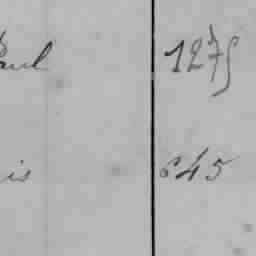 Paul 1275
is 645